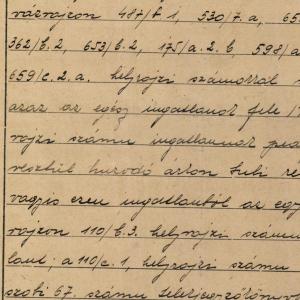 vázrajzon 487/b 1, 530/7.a, 65
362/b.2, 653/b.2, 175/a.2.b, 598/a
659/c.2.a. helyrajzi számokkal
azaz az egész ingatlanok fele 1/
rajzi számu ingatlannak
huzódó árkon tuli ré
vagyis ezen ingatlanból az egy
rajzon 110/b.3. helyrajzi számu
lant; a 110/c.1, helyrajzi számu
szobi 67. számu